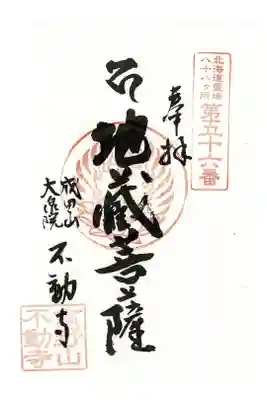 北海道霊場
八十八ヶ所
第五十六番
奉拝
地蔵菩薩
成田山
大泉院
不動寺
不動寺